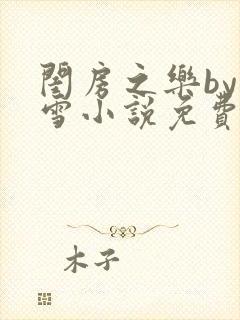 閨房之樂by
雪小說免費
木子